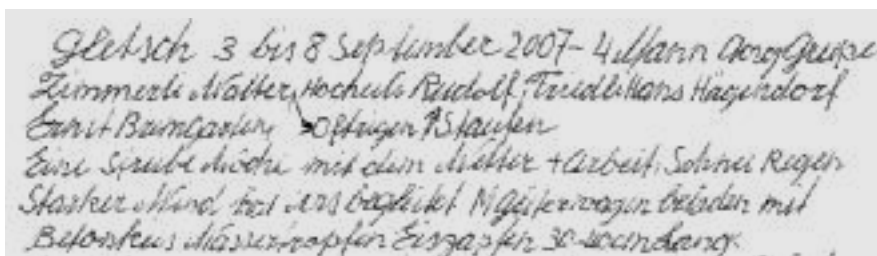 Gletsch 3 bis 8 September 2007 - 4 Mann Aarg Gruppe
Zimmerli Walter, Hochuli Rudolf, Friedli Hans Hägendorf
Ernst Baumgartner Oftrigen Staufen
Eine Woche mit dem Wetter + Arbeit, Schnee Regen
Starker Wind hat uns begleitet Güterwagen beladen mit
Betonkus Wassertropfen Eiszapfen 30-40cm Lang.